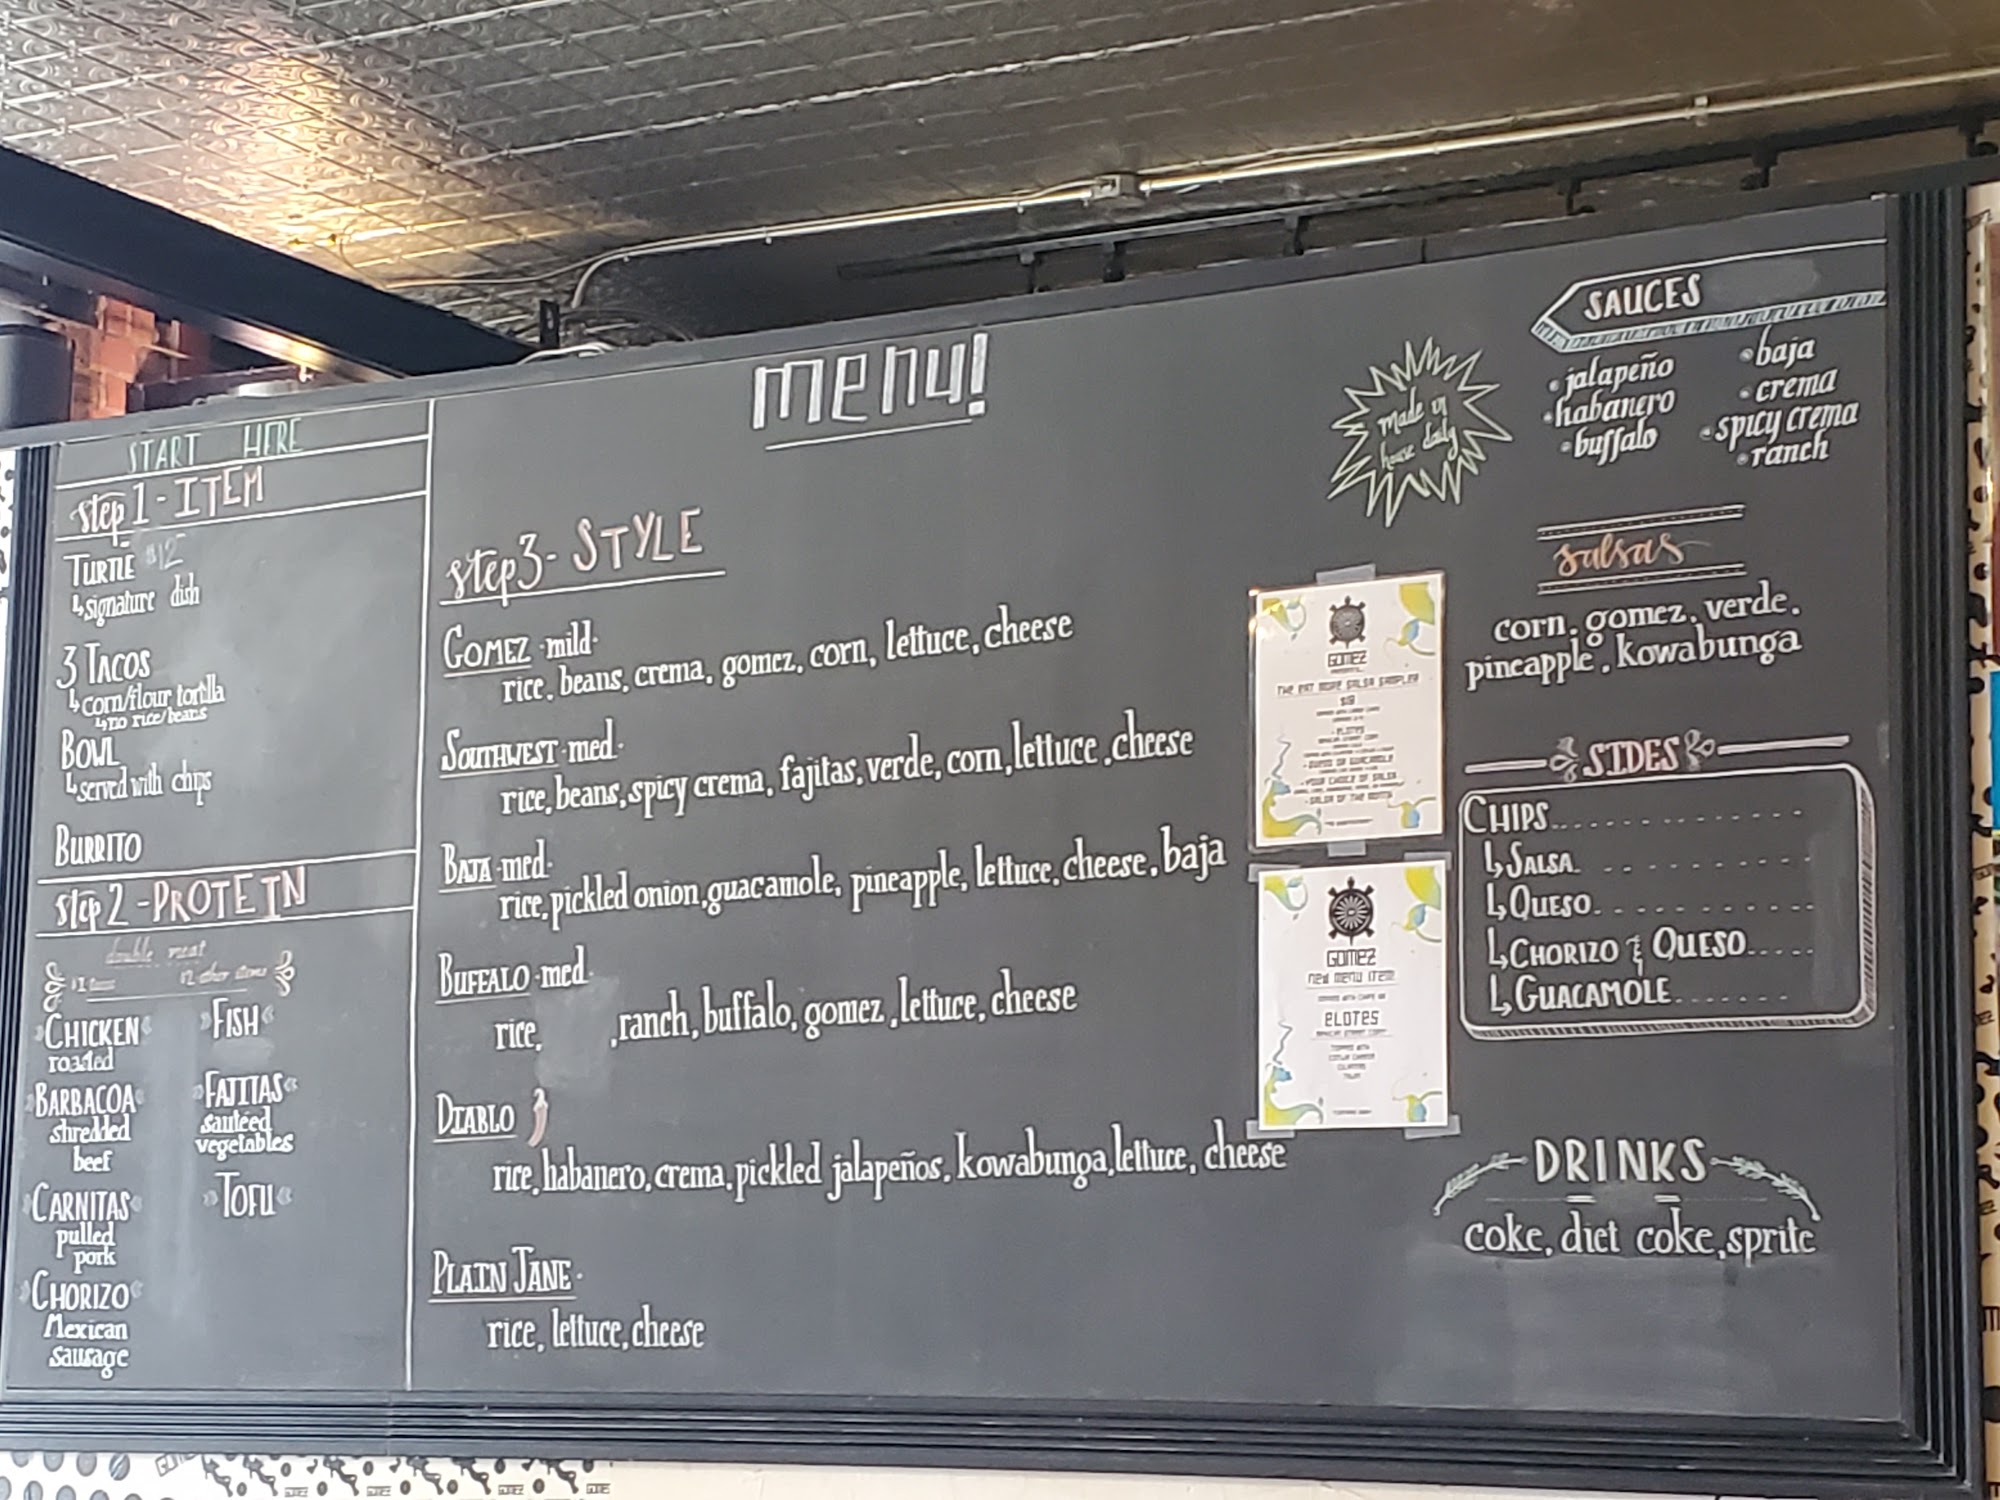 menu!
START HERE
step 1 - ITEM
TURTLE $12
signature dish
3 TACOS
corn/flour tortilla
no rice/beans
BOWL
served with chips
BURRITO
step 2 - PROTEIN
double meat
$2 other items
CHICKEN
roasted
BARBACOA
shredded
beef
CARNITAS
pulled
pork
CHORIZO
Mexican
sausage
FISH
FAJITAS
sauteed
vegetables
TOFU
step 3 - STYLE
GOMEZ · mild ·
rice, beans, crema, gomez, corn, lettuce, cheese
SOUTHWEST · med ·
rice, beans, spicy crema, fajitas, verde, corn, lettuce, cheese
BAJA · med ·
rice, pickled onion, guacamole, pineapple, lettuce, cheese, baja
BUFFALO · med ·
rice, , ranch, buffalo, gomez, lettuce, cheese
DIABLO
rice, habanero, crema, pickled jalapeños, kowabunga, lettuce, cheese
PLAIN JANE ·
rice, lettuce, cheese
made in
house daily
GOMEZ
THE EAT MORE SALSA SAMPLER
ELOTES
YOUR CHOICE OF SALSA
SALSA OF THE MONTH
GOMEZ
NEW MENU ITEM
ELOTES
SAUCES
• jalapeño
• habanero
• buffalo
• baja
• crema
• spicy crema
• ranch
salsas
corn, gomez, verde,
pineapple, kowabunga
SIDES
CHIPS
SALSA
QUESO
CHORIZO & QUESO
GUACAMOLE
DRINKS
coke, diet coke, sprite